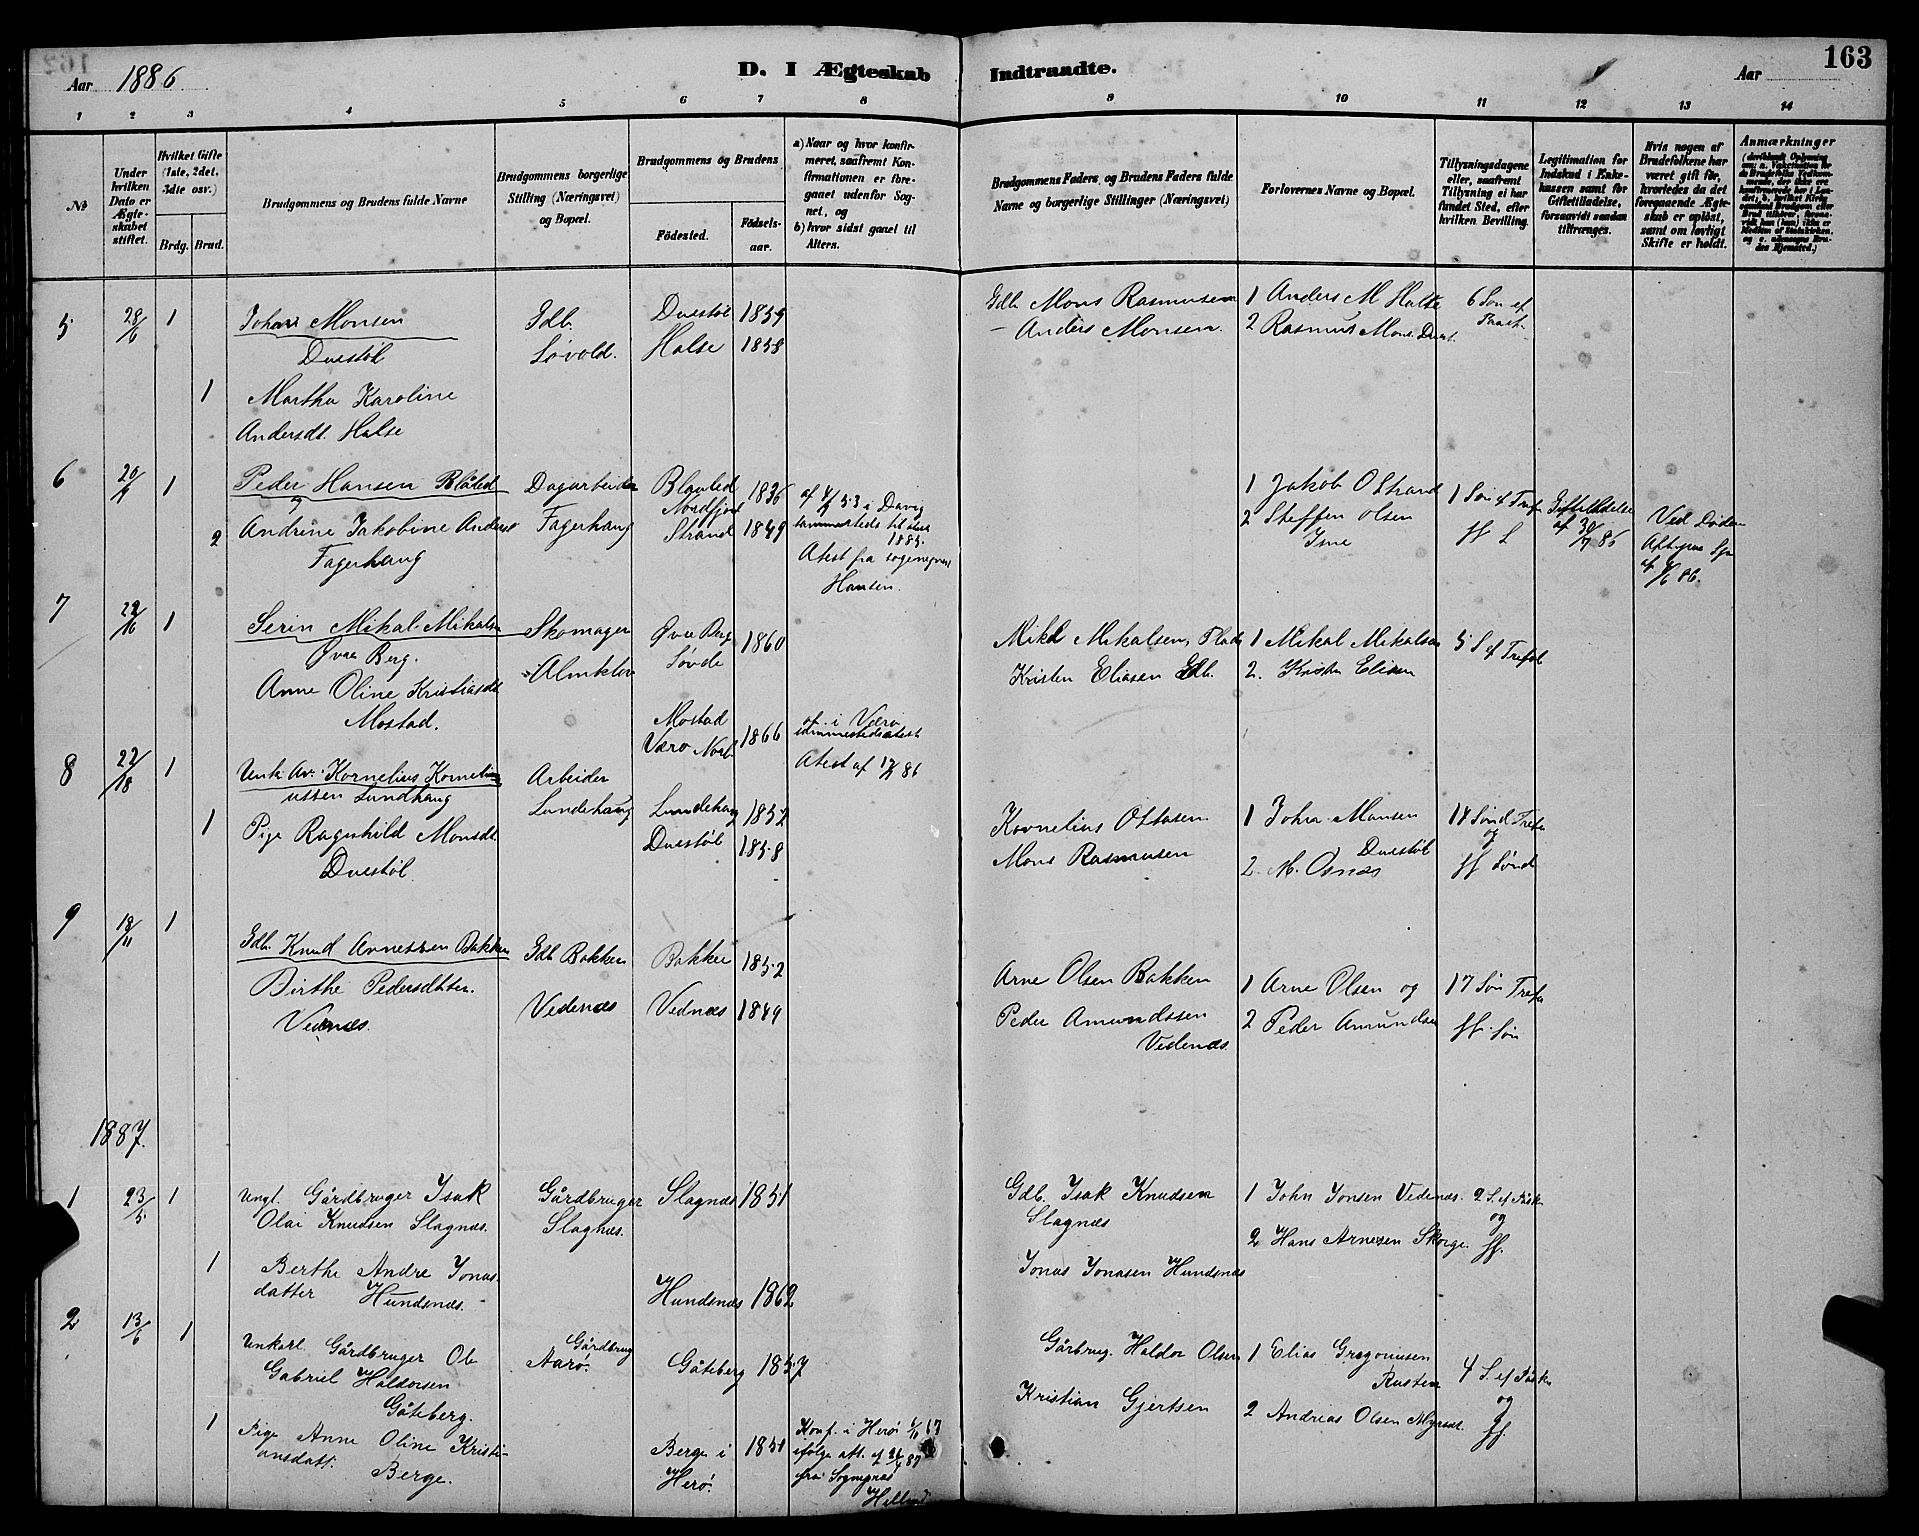 163
Aar 1886
D. I Ægteskab
Indtraadte.
Aar
1 2 3 4 5 6 7 8
9 10 11 12 13 14
No
Under hvilken Dato er Ægteskabet stiftet.
Hvilket Gifte (1ste, 2det, 3die osv.)
Brdg. Brud.
Brudgommens og Brudens fulde Navne
Brudgommens borgerlige Stilling (Næringsvei) og Bopæl.
Brudgommens og Brudens
Fødested.
Fødselsaar.
a) Naar og hvor konfirmeret, saafremt Konfirmationen er foregaaet udenfor Sognet, og
b) hvor sidst gaaet til Alters.
Brudgommens Faders og Brudens Faders fulde Navne og borgerlige Stillinger (Næringsvei)
Forlovernes Navne og Bopæl.
Tillysningsdagene eller, saafremt Tillysning ei har fundet Sted, efter hvilken Bevilling.
Legitimation for Indskud i Enkekassen samt for Giftetilladelse, forsaavidt saadan tiltrænges.
Hvis nogen af Brudefolkene har været gift før, hvorledes da det foregaaende Ægteskab er opløst, samt om lovligt Skifte er holdt.
Anmærkninger
5 28/6 1 Johan Monsen
Dvestøl
Gdb.
Løvold.
Dvestøl 1859
Halse 1858
Gdb. Mons Rasmusen
– Anders Monsen.
1 Anders M Halse
2 Rasmus Mons. Dvest.
6 Søn ef
1 Martha Karoline
Andersdt. Halse
6 20/9 1 Peder Hansen Blåled
og
2 Andrine Jakobine Anderst
Fagerhaug
Dagarbeider
Fagerhaug
Nordfjord 1836
Strand 1849
Atest fra sogneprest
Hansen.
1 Jakob O Strand
2 Steffen Olsen
1 Søn ef Trefo
Giftetilladelse
af 30/7 86
Ved Døden
7 1 Serin Mikal Mikalsen
Øvre Berg.
Anne Oline Kristiasdt
Mostad.
Skomager
Almklov
Øvre Berg 1860
Søvde
Mostad 1866
Værø Nordl.
af. i Værø
Atest af 12/8 86
Mikl Mikalsen, Flade
Kristen Eliasen Gdb.
1 Mikal Mikalsen
2. Kristen Elisen
5 S ef Trefol
8 22/18 1 Unk. Ar. Kornelius Korneli
ussen Lundhaug
1 Pige Ragnhild Monsdt.
Dvestøl
Arbeider
Lundehaug
Lundehaug 1852
Dvestøl 1858
Kornelius Ottosen
Mons Rasmusen
1 Johan Monsen
Dvestøl
2. M. Osnæs
18 Sønd Trefo
og
ff Sønd
9 18/11 1
Gdb. Knud Arnessen Bakken
Birthe Pedersdatter.
Vednæs.
Gdb Bakken
Vedenæs
Bakken 1852
Vednæs 1849
Arne Olsen Bakken
Peder Amundssen
Vedenæs.
1 Arne Olsen og
2 Peder Amundsen
17 Søn Trefo
ff. Søn
1887.
1 23/5. 1 Ungk. Gårdbruger Isak
Olai Knudsen Slagnæs.
1 Berthe Andre Jonas
datter Hundsnæs.
Gårdbruger
Slagnæs.
Slagnæs 1851
Hundsnæs 1862
Gdb. Isak Knudsen
Slagnæs
Jonas Jonasen Hundsnæs
1 John Jonsen Vedenæs.
2 Hans Arnesen Skorge.
2 S. ef Påske
og
ff.
2 13/6 1
Unkarl Gårdbruger Ole
Gabriel Haldorsen
Gåteberg.
1 Pige Anne Oline Kristi-
ansdatt. Berge.
Gårdbrug
Aarø.
Gåteberg 1857
Berge i 1851
Herø.
Konf. i Herø
ifølge att. af
fra Sognepræs
Gårbrug. Haldor Olsen
Kristian Gjertsen
1 Elias Gregoriusen
Rusten
2 Andreas Olsen
4 S. ef Påske
og
ff.